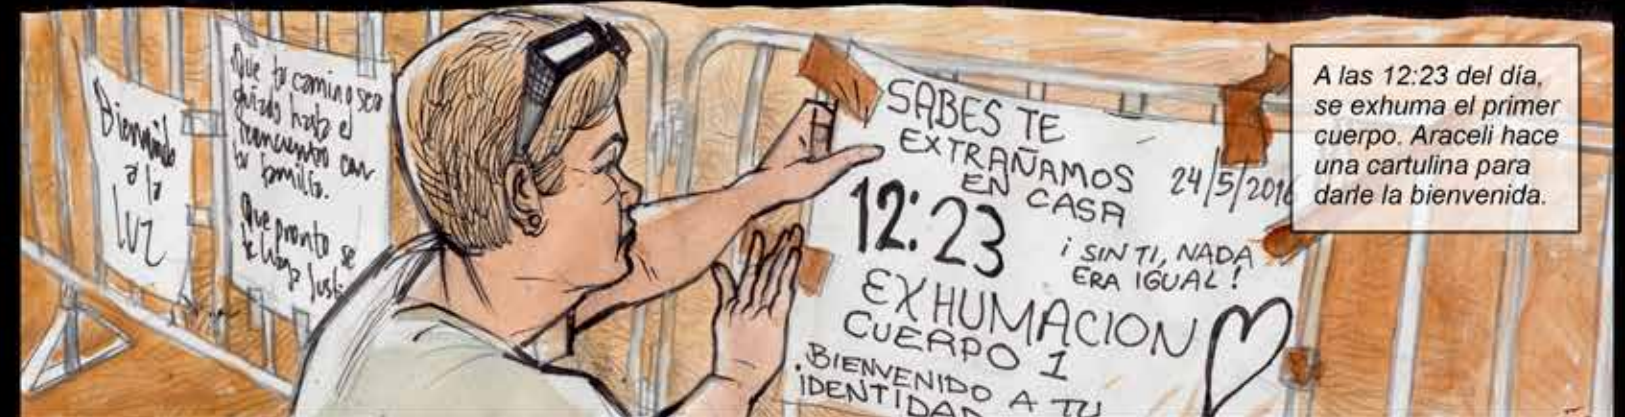 Bienvenido
a la
LUZ
Que tu camino sea
quizas hasta el
reencuentro con
tu familia.
Que pronto se
te haga Just
SABES TE
EXTRAÑAMOS
EN CASA
24/5/2016
12:23
¡SIN TI, NADA
ERA IGUAL!
EXHUMACION
CUERPO 1
BIENVENIDO A TU
IDENTIDAD
A las 12:23 del día,
se exhuma el primer
cuerpo. Araceli hace
una cartulina para
darle la bienvenida.